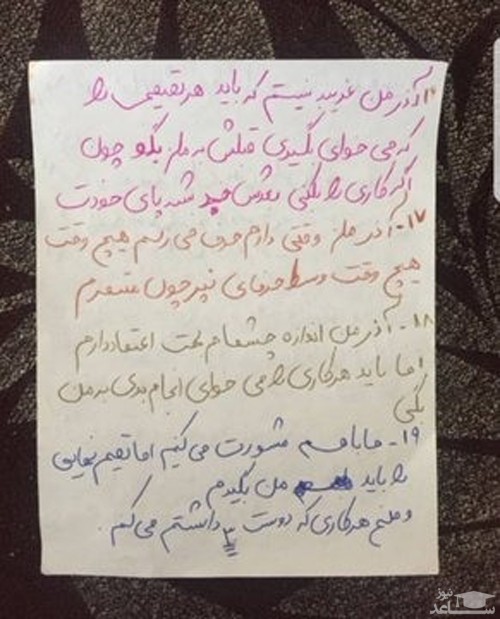 ۱۶- آذر من غریبه نیستم که باید هر تصمیمی را
که می خوای بگیری قبلش به من بگو چون
اگر کاری را بکنی بعدش چیزی شد پای خودت
۱۷- آذر من وقتی دارم حرف می زنم هیچ وقت
هیچ وقت وسط حرفای نپر چون متنفرم
۱۸- آذر من اندازه چشمام بهت اعتماد دارم
اما باید هر کاری را می خوای انجام بدی به من
بگی
۱۹- ما باهم مشورت می کنیم اما تصمیم نهایی
را باید من بگیرم
و منم هر کاری که دوست داشتم می کنم.
خبر
ساعد
نیوز